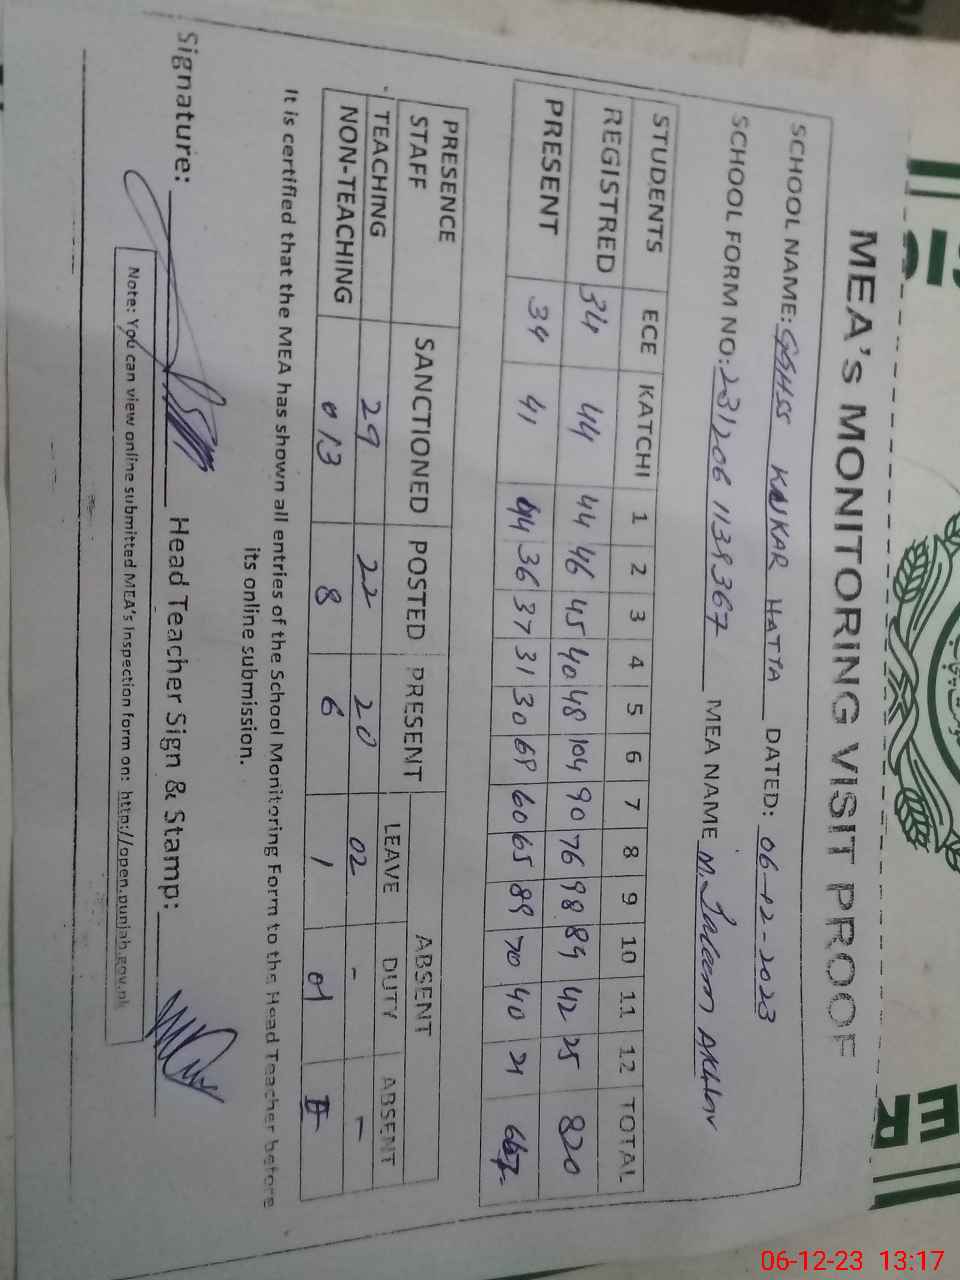 MEA'S MONITORING VISIT PROOF
SCHOOL NAME: GGHSS KAKAR HATTA DATED: 06-12-2023
SCHOOL FORM NO: MEA NAME M. Akhtar
STUDENTS ECE KATCHI 1 2 3 4 5 6 7 8 9 10 11 12 TOTAL
REGISTRED 34 44 44 46 45 40 48 104 90 76 98 89 42 25 820
PRESENT 34 41 44 36 37 31 30 69 60 65 89 70 40 21
PRESENCE STAFF SANCTIONED POSTED PRESENT ABSENT
LEAVE DUTY ABSENT
TEACHING 29 22 20 02 - -
NON-TEACHING 013 8 6 1 01
It is certified that the MEA has shown all entries of the School Monitoring Form to the Head Teacher before
its online submission.
Signature: Head Teacher Sign & Stamp:
Note: You can view online submitted MEA's Inspection form on: http://open.punjab.gov.pk
06-12-23 13:17